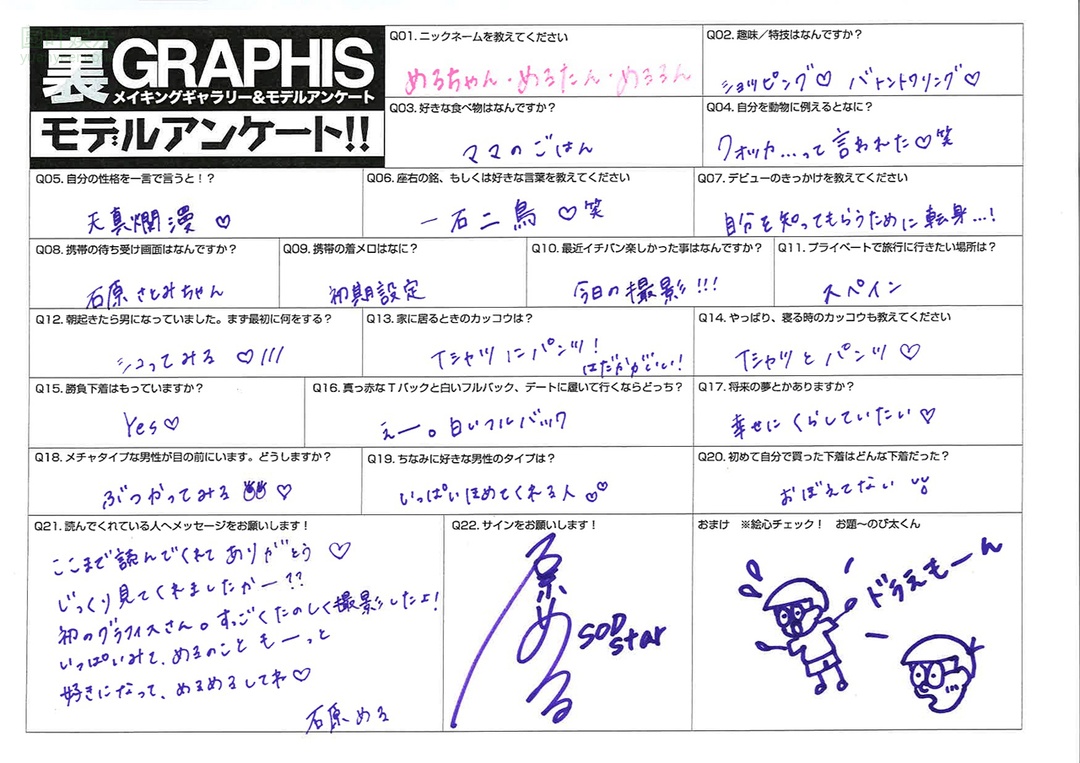 裏GRAPHIS
メイキングギャラリー&モデルアンケート
モデルアンケート!!
Q01. ニックネームを教えてください
めるちゃん・めるたん・めるるん
Q02. 趣味／特技はなんですか？
ショッピング♡ バトントワリング♡
Q03. 好きな食べ物はなんですか？
ママのごはん
Q04. 自分を動物に例えるとなに？
クォッカ...って言われた♡笑
Q05. 自分の性格を一言で言うと！？
天真爛漫 ♡
Q06. 座右の銘、もしくは好きな言葉を教えてください
一石二鳥 ♡笑
Q07. デビューのきっかけを教えてください
自分を知ってもらうために転身...!
Q08. 携帯の待ち受け画面はなんですか？
石原さとみちゃん
Q09. 携帯の着メロはなに？
初期設定
Q10. 最近イチバン楽しかった事はなんですか？
今日の撮影!!!
Q11. プライベートで旅行に行きたい場所は？
スペイン
Q12. 朝起きたら男になっていました。まず最初に何をする？
シコってみる ♡///
Q13. 家に居るときのカッコウは？
Tシャツにパンツ！
はだかがいい！
Q14. やっぱり、寝る時のカッコウも教えてください
Tシャツとパンツ ♡
Q15. 勝負下着はもっていますか？
Yes♡
Q16. 真っ赤なＴバックと白いフルバック、デートに履いて行くならどっち？
えー。白いフルバック
Q17. 将来の夢とかありますか？
幸せにくらしていたい♡
Q18. メチャタイプな男性が目の前にいます。どうしますか？
ぶつかってみる ♡
Q19. ちなみに好きな男性のタイプは？
いっぱいほめてくれる人
Q20. 初めて自分で買った下着はどんな下着だった？
おぼえてない
Q21. 読んでくれている人へメッセージをお願いします！
ここまで読んでくれてありがとう ♡
じっくり見てくれましたかー??
初のグラフィスさん。すっごくたのしく撮影したよ！
いっぱいみて、めるのこと もーっと
好きになって、めるめるしてネ♡
石原める
Q22. サインをお願いします！
石原める
SOD
star
おまけ ※絵心チェック！ お題〜のび太くん
ドラえもーん